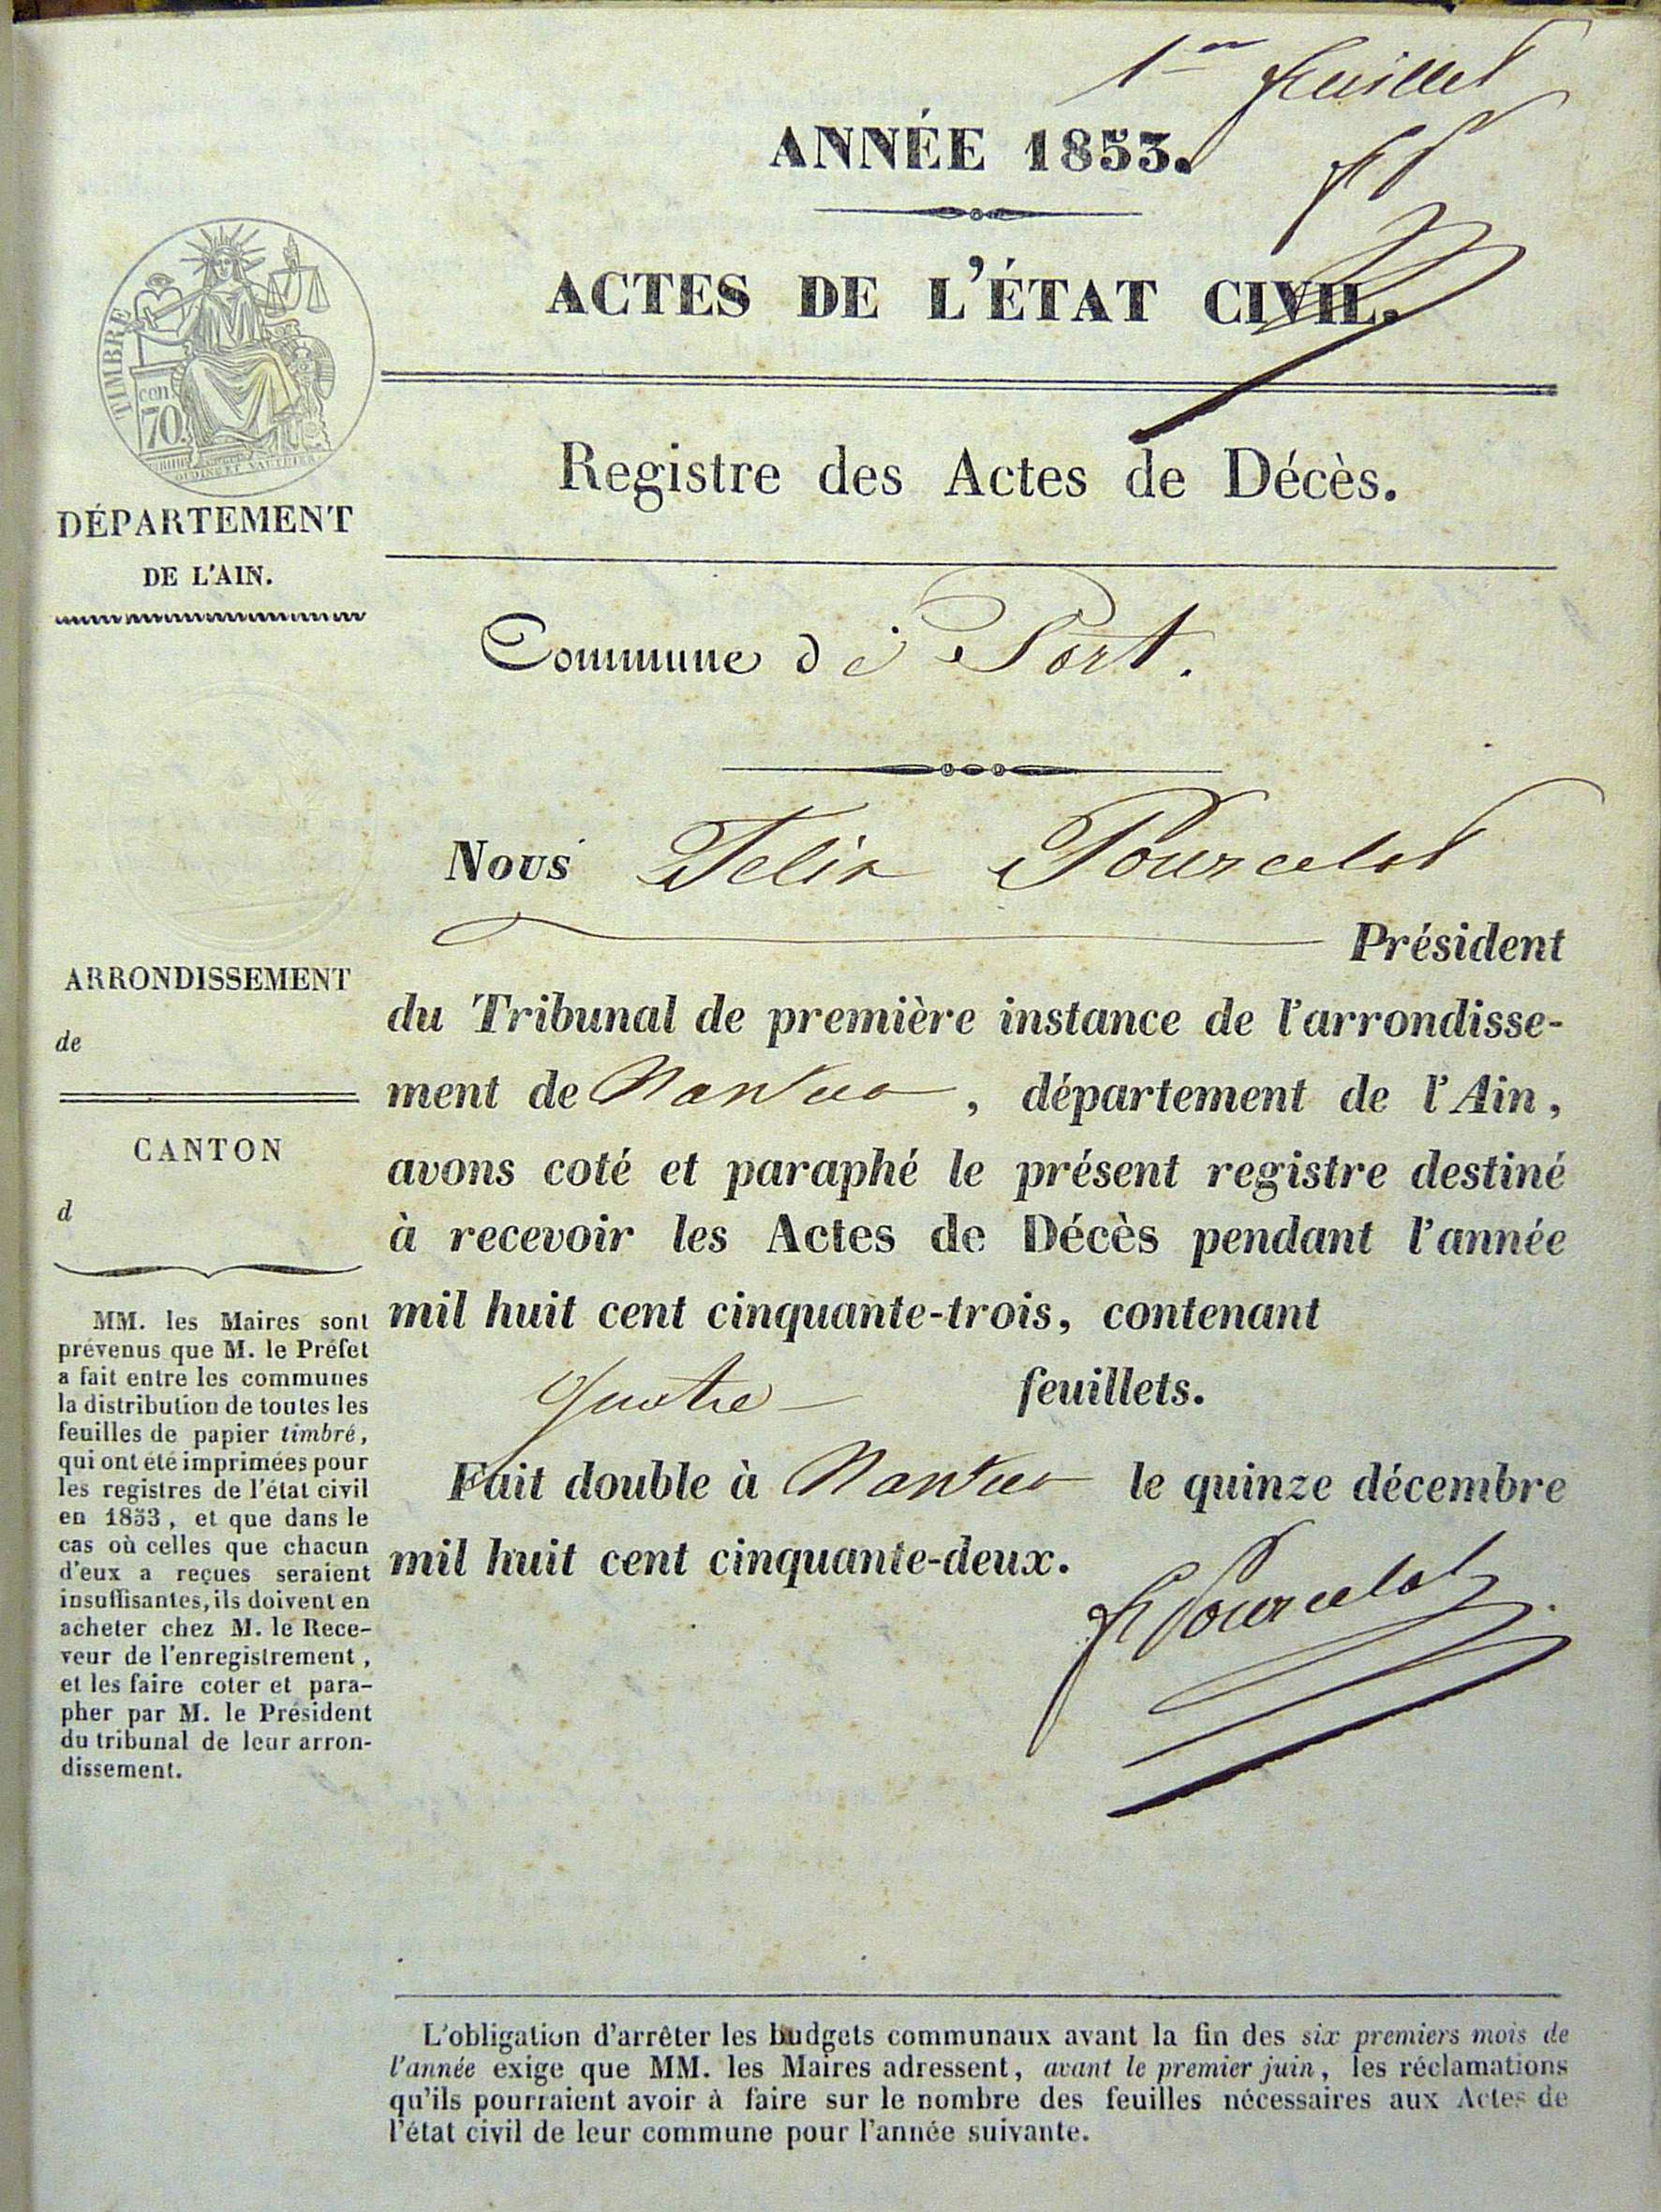 1er feuillet
ANNÉE 1853.
fP
ACTES DE L'ÉTAT CIVIL.
TIMBRE
cen
70.
OUDINE ET VAUTHIER
Registre des Actes de Décès.
DÉPARTEMENT
DE L'AIN.
Commune de Port.
Nous Felix Pourcelot
Président
du Tribunal de première instance de l'arrondisse-
ment de Nantua, département de l'Ain,
avons coté et paraphé le présent registre destiné
à recevoir les Actes de Décès pendant l'année
mil huit cent cinquante-trois, contenant
quatre feuillets.
Fait double à Nantua le quinze décembre
mil huit cent cinquante-deux.
f Pourcelot
ARRONDISSEMENT
de
CANTON
d
MM. les Maires sont
prévenus que M. le Préfet
a fait entre les communes
la distribution de toutes les
feuilles de papier timbré,
qui ont été imprimées pour
les registres de l'état civil
en 1853, et que dans le
cas où celles que chacun
d'eux a reçues seraient
insuffisantes, ils doivent en
acheter chez M. le Rece-
veur de l'enregistrement,
et les faire coter et para-
pher par M. le Président
du tribunal de leur arron-
dissement.
L'obligation d'arrêter les budgets communaux avant la fin des six premiers mois de
l'année exige que MM. les Maires adressent, avant le premier juin, les réclamations
qu'ils pourraient avoir à faire sur le nombre des feuilles nécessaires aux Actes de
l'état civil de leur commune pour l'année suivante.